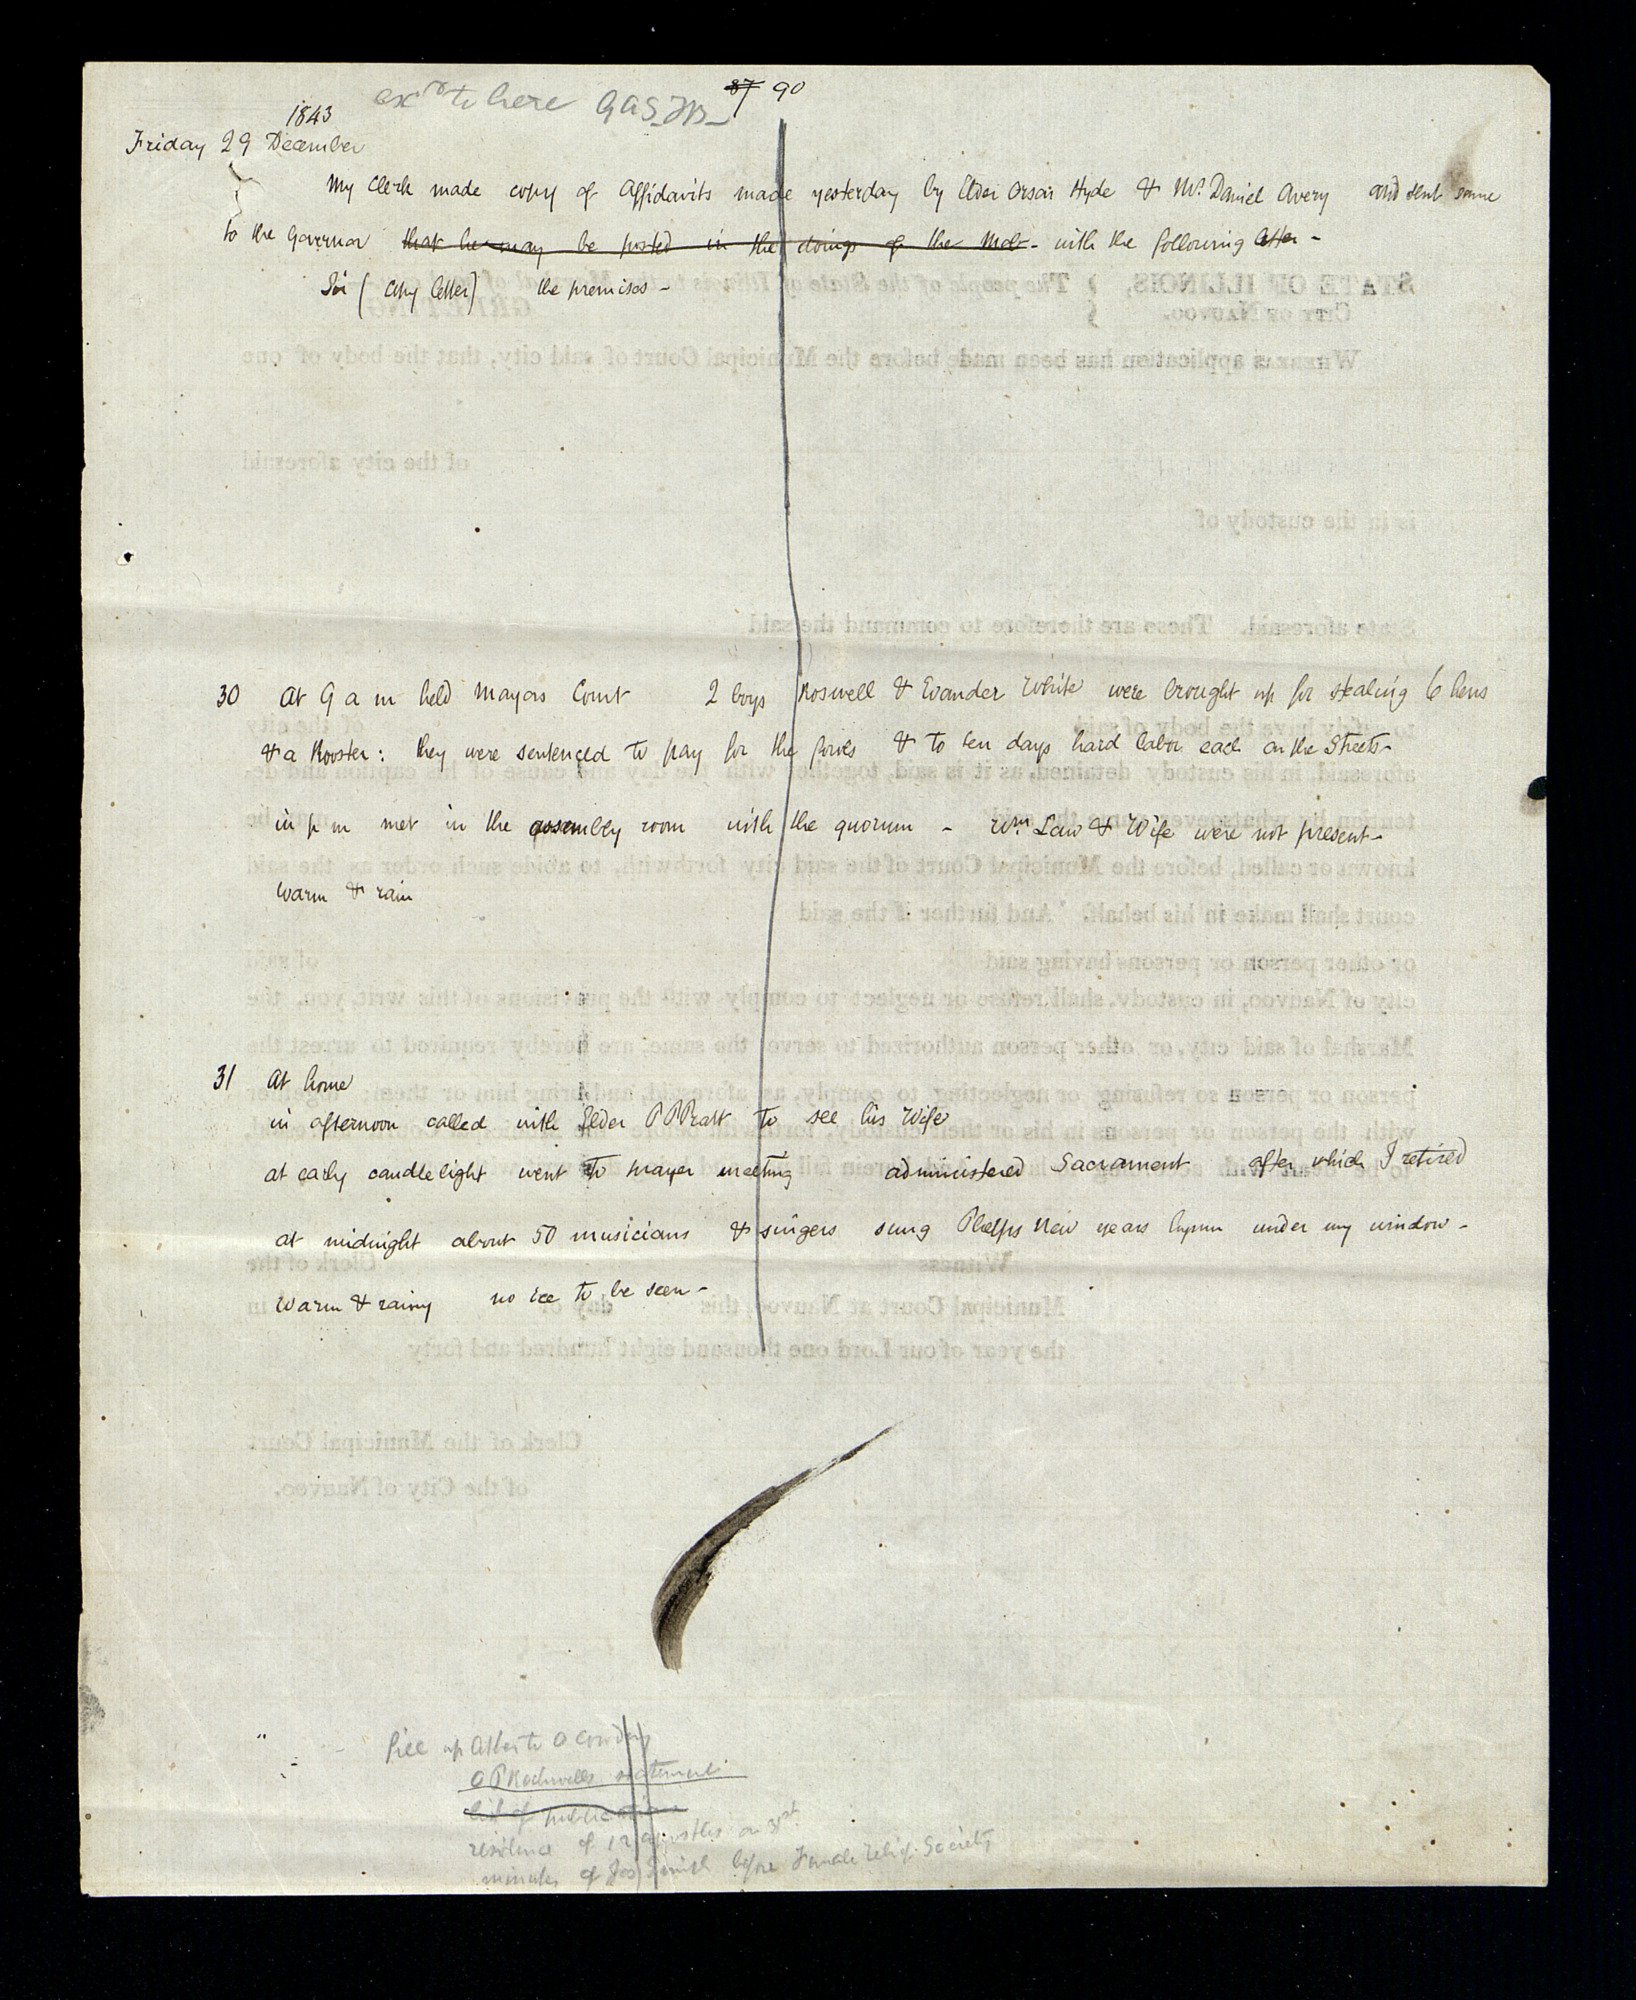 exd to here GAS. TB—
87 90
1843
Friday 29 December
My Clerk made copy of Affidavits made yesterday by Elder Orson Hyde & Mr. Daniel Avery and sent same
to the Governor that he may be posted in the doings of the Mob - with the following letter -
Sir ( Copy letter) the premises -
30 At 9 a m held Mayors Court 2 boys Roswell & Evander White were brought up for stealing 6 hens
& a Rooster: they were sentenced to pay for the fowls & to ten days hard labor each on the Streets-
in p m met in the assembly room with the quorum - Wm. Law & Wife were not present-
warm & rain
31 At home
in afternoon called with Elder P P Pratt to see his Wife
at early candle light went to prayer meeting administered Sacrament after which I retired
at midnight about 50 musicians & singers sung Phelps New years hymn under my window -
warm & rainy no ice to be seen -
fill up letter to O Cowdery
O P Rockwells statement
list of publications
residence of 12 apostles on 31st
minutes of Jos Smith before Female Relief Society
STATE OF ILLINOIS, } The people of the State of Illinois to the Marshal of said city
CITY OF NAUVOO. } GREETING
WHEREAS application has been made before the Municipal Court of said city, that the body of one
of the city aforesaid
is in the custody of
State aforesaid. These are therefore to command the said
of the city
aforesaid, in his custody detained, as it is said, together with the day and cause of his caption and de-
tention, by whatsoever name the said
known or called, before the Municipal Court of the said city forthwith, to abide such order as the said
court shall make in his behalf. And further if the said
or other person or persons having said of said
city of Nauvoo, in custody, shall refuse or neglect to comply with the provisions of this writ, you, the
Marshal of said city, or other person authorized to serve the same, are hereby required to arrest the
person or persons so refusing or neglecting to comply, as aforesaid, and bring him or them, together
with the person or persons in his or their custody, forthwith before the
Witness Clerk of the
Municipal Court at Nauvoo, this day of in
the year of our Lord one thousand eight hundred and forty
Clerk of the Municipal Court
of the City of Nauvoo.